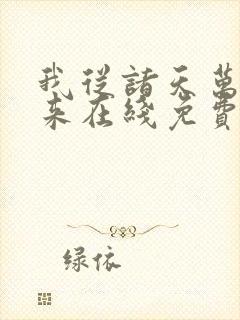 我从诸天万
来在线免费
绿依